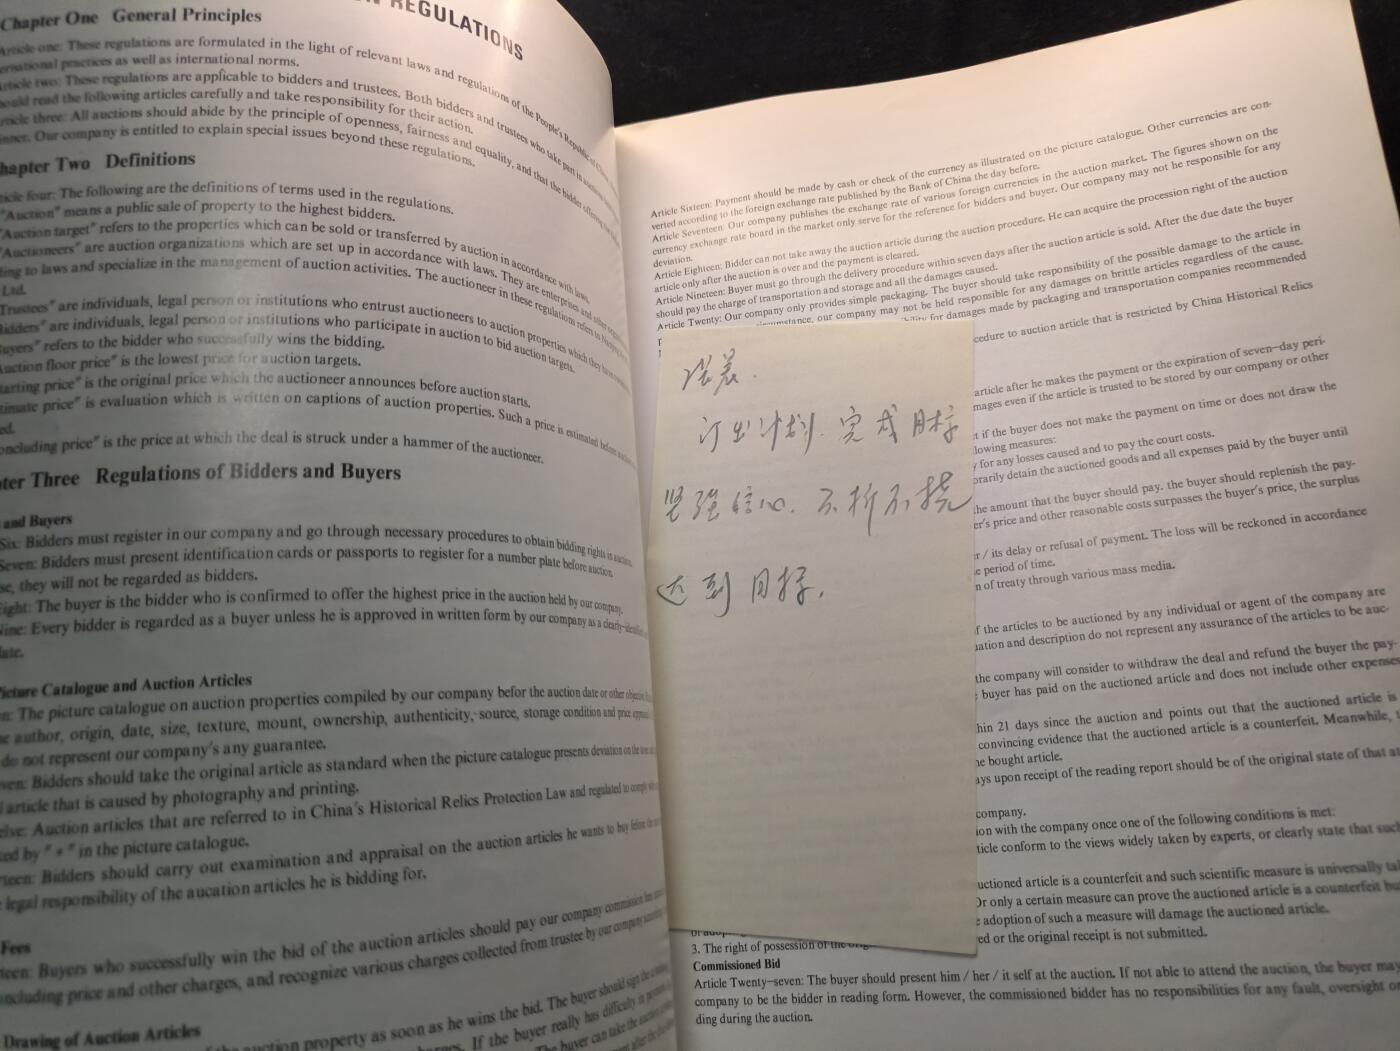 REGULATIONS
Chapter One General Principles
Article one: These regulations are formulated in the light of relevant laws and regulations of the People's Republic of
ernational practices as well as international norms.
Article two: These regulations are applicable to bidders and trustees. Both bidders and trustees who take part in
ould read the following articles carefully and take responsibility for their action.
rticle three: All auctions should abide by the principle of openness, fairness and equality, and that the bidder offering
nner. Our company is entitled to explain special issues beyond these regulations.
hapter Two Definitions
ticle four: The following are the definitions of terms used in the regulations.
"Auction" means a public sale of property to the highest bidders.
"Auction target" refers to the properties which can be sold or transferred by auction in accordance with laws.
"Auctioneers" are auction organizations which are set up in accordance with laws. They are enterprises and other
ding to laws and specialize in the management of auction activities. The auctioneer in these regulations refers to
Ltd.
Trustees" are individuals, legal person or institutions who entrust auctioneers to auction properties which they have
Bidders" are individuals, legal person or institutions who participate in auction to bid auction targets.
uyers" refers to the bidder who successfully wins the bidding.
uction floor price" is the lowest price for auction targets.
tarting price" is the original price which the auctioneer announces before auction starts.
timate price" is evaluation which is written on captions of auction properties. Such a price is estimated before
ed.
oncluding price" is the price at which the deal is struck under a hammer of the auctioneer.
ter Three Regulations of Bidders and Buyers
and Buyers
Six: Bidders must register in our company and go through necessary procedures to obtain bidding rights in auction.
Seven: Bidders must present identification cards or passports to register for a number plate before auction.
se, they will not be regarded as bidders.
Eight: The buyer is the bidder who is confirmed to offer the highest price in the auction held by our company.
Nine: Every bidder is regarded as a buyer unless he is approved in written form by our company as a
late.
Picture Catalogue and Auction Articles
en: The picture catalogue on auction properties compiled by our company befor the auction date or other
he author, origin, date, size, texture, mount, ownership, authenticity, source, storage condition and price
do not represent our company's any guarantee.
even: Bidders should take the original article as standard when the picture catalogue presents deviation on the
l article that is caused by photography and printing.
elve: Auction articles that are referred to in China's Historical Relics Protection Law and regulated to comply
ked by " * " in the picture catalogue.
rteen: Bidders should carry out examination and appraisal on the auction articles he wants to buy before the
e legal responsibility of the aucation articles he is bidding for.
Fees
teen: Buyers who successfully win the bid of the auction articles should pay our company commission
oncluding price and other charges, and recognize various charges collected from trustee by our company
Drawing of Auction Articles
of the auction property as soon as he wins the bid. The buyer should sign the
charges. If the buyer really has difficulty in
The buyer can take the auction
Article Sixteen: Payment should be made by cash or check of the currency as illustrated on the picture catalogue. Other currencies are con-
verted according to the foreign exchange rate published by the Bank of China the day before.
Article Seventeen: Our company publishes the exchange rate of various foreign currencies in the auction market. The figures shown on the
currency exchange rate board in the market only serve for the reference for bidders and buyer. Our company may not be responsible for any
deviation.
Article Eighteen: Bidder can not take away the auction article during the auction procedure. He can acquire the procession right of the auction
article only after the auction is over and the payment is cleared.
Article Nineteen: Buyer must go through the delivery procedure within seven days after the auction article is sold. After the due date the buyer
should pay the charge of transportation and storage and all the damages caused.
Article Twenty: Our company only provides simple packaging. The buyer should take responsibility of the possible damage to the article in
circumstance, our company may not be held responsible for any damages on brittle articles regardless of the cause.
for damages made by packaging and transportation companies recommended
cedure to auction article that is restricted by China Historical Relics
article after he makes the payment or the expiration of seven-day peri-
mages even if the article is trusted to be stored by our company or other
t if the buyer does not make the payment on time or does not draw the
lowing measures:
for any losses caused and to pay the court costs.
orarily detain the auctioned goods and all expenses paid by the buyer until
the amount that the buyer should pay. the buyer should replenish the pay-
er's price and other reasonable costs surpasses the buyer's price, the surplus
r / its delay or refusal of payment. The loss will be reckoned in accordance
e period of time.
n of treaty through various mass media.
f the articles to be auctioned by any individual or agent of the company are
uation and description do not represent any assurance of the articles to be auc-
the company will consider to withdraw the deal and refund the buyer the pay-
buyer has paid on the auctioned article and does not include other expenses
hin 21 days since the auction and points out that the auctioned article is
convincing evidence that the auctioned article is a counterfeit. Meanwhile,
he bought article.
ays upon receipt of the reading report should be of the original state of that at
company.
ion with the company once one of the following conditions is met:
ticle conform to the views widely taken by experts, or clearly state that such
uctioned article is a counterfeit and such scientific measure is universally
Or only a certain measure can prove the auctioned article is a counterfeit but
e adoption of such a measure will damage the auctioned article.
3. The right of possession of the
ed or the original receipt is not submitted.
Commissioned Bid
Article Twenty-seven: The buyer should present him / her / it self at the auction. If not able to attend the auction, the buyer may
company to be the bidder in reading form. However, the commissioned bidder has no responsibilities for any fault, oversight or
ding during the auction.
订出计划.完成目标
坚强信心.不折不挠
达到目标.